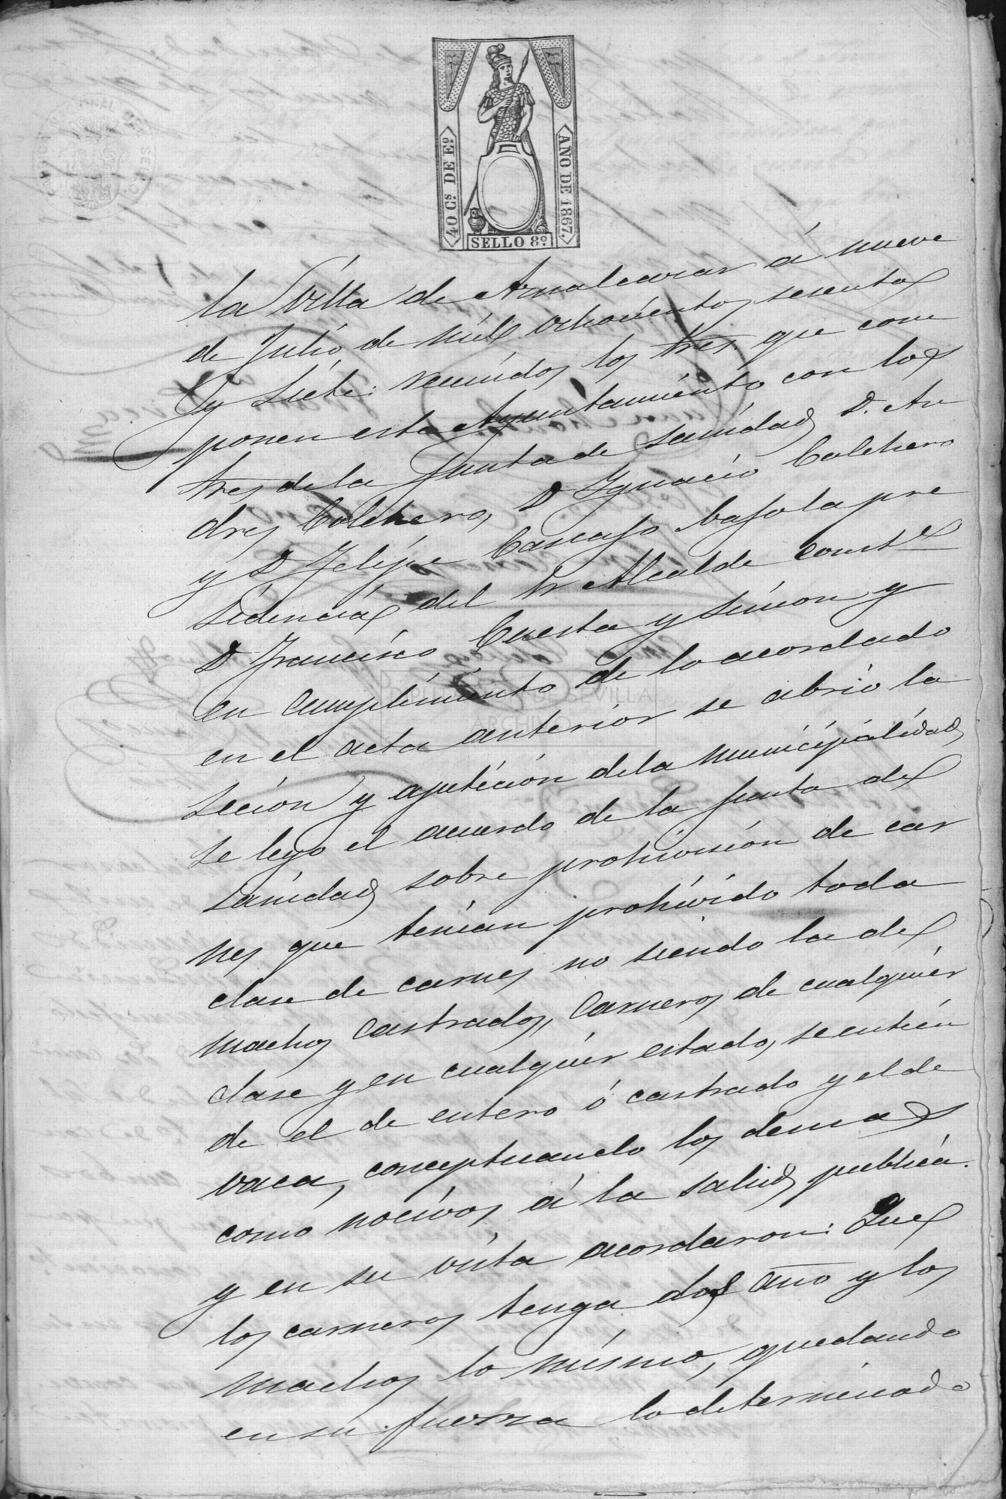 40 Cs DE Eº
AÑO DE 1867.
SELLO 8º
la Villa de Aznalcazar á nueve
de Julio de mil ochocientos sesenta
y siete: reunidos los tres que com
ponen este Ayuntamiento con los
tres de la Junta de Sanidad D. An
dres Colchero, D Ygnacio Colchero
y D Felipe Cascajo bajo la pre
sidencia del Sr Alcalde constl
D Francisco Cuesta y Simon y
en cumplimiento de lo acordado
en el acta anterior se abrio la
seción y apetición de la municipalidad
se leyo el acuerdo de la Junta de
Sanidad sobre prohivisión de car
nes que tenian prohivido toda
clase de carnes no siendo la de
machos castrados, Carneros de cualquier
clase y en cualquier estado, se entien
de el de entero ó castrado y el de
vaca, conceptuando los demas
como nocivos á la salud publica.
y en su vista acordaron: Que
los carneros tenga dos año y los
machos lo mismo, quedando
en su fuerza lo determinado
DIPUTACIÓN DE SEVILLA
ARCHIVO